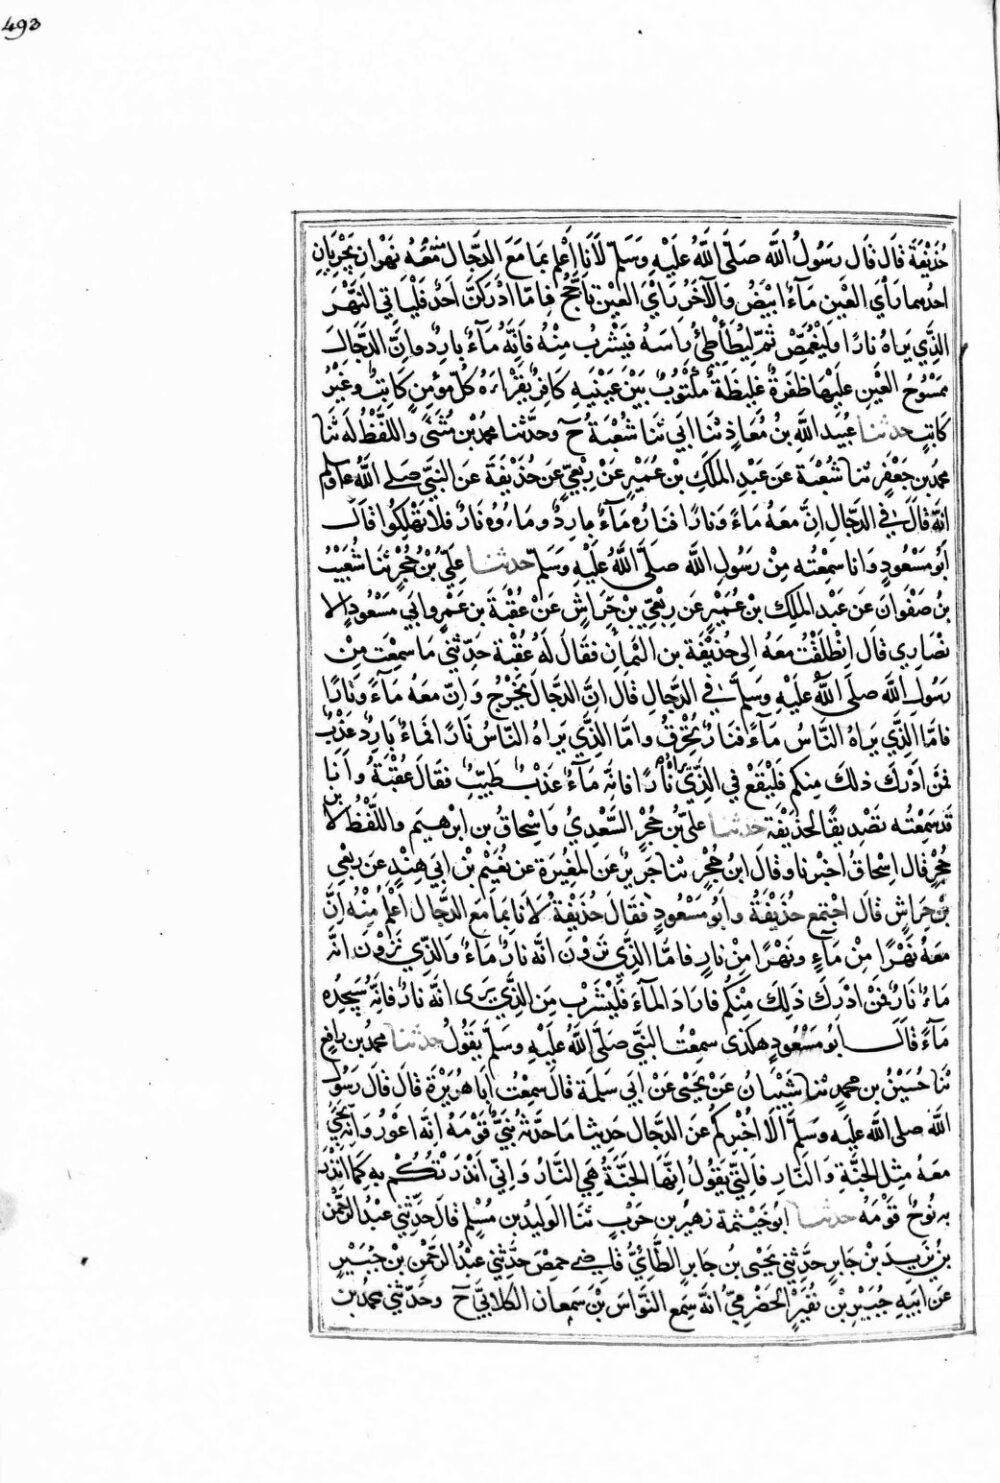 493
حُذَيْفَةَ قَالَ قَالَ رَسُولُ اللَّه صَلَّى اللَّهُ عَلَيْهِ وَسَلَّمَ لَأَنَا أَعْلَمُ بِمَا مَعَ الدَّجَّالِ مِنْهُ مَعَهُ نَهْرَانِ يَجْرِيَانِ
احدهما رَأْيَ العَيْنِ مَآءٌ ابْيَضُ وَالآخَرُ رَأْيَ العَيْنِ نار تَأَجَّجُ فَامَّا ادْرَكَنَّ احَدٌ فَلْيَاتِي النَّهْرَ
الَّذِي يَرَاهُ نَارًا وَلْيُغْمِّضْ ثُمَّ لِيُطَأْطِئْ رَاسَهُ فَيَشْرَبُ مِنْهُ فَانَّهُ مَآءٌ بارِدٌ وانَّ الدَّجَّالَ
مَمْسُوحُ العَيْنِ عليْهَا ظَفَرَةٌ غَلِيظَةٌ مَكْتُوبٌ بَيْنَ عَيْنَيهِ كَافِرٌ يَقْرَاءُهُ كُلُّ مُؤْمِنٍ كَاتِبٌ وغَيْرُ
كَاتِبٍ حدثنا عُبَيد اللَّهِ بنُ مُعَاذٍ ثَنَا ابي ثنَا شُعْبَةُ حَ وحدَّثنا محمدُ بْن مُثَنَّى واللَّفْظُ لَه ثَنَا
محمد بن جَعْفَرٍ ثنا شُعْبَة عَن عَبْدِ المَلِكِ بْن عُمَيْرٍ عَنْ رِبْعِيٍّ عَن حُذَيْفَةَ عَن النبيِّ صَلى اللَّهُ عليه وسلم
انَّه قَالَ فِي الدَّجَّالِ اِنَّ مَعَهُ مَاءً وَنَارًا فَنَارُه مَآءٌ بارِدٌ ومَاءُوهُ نَارٌ فَلا تَهْلِكُوا قَالَ
أَبُو مَسْعُودٍ وَانا سمِعْتُه مِنْ رَسُولِ اللَّه صَلَّى اللَّهُ عَلَيْهِ وَسَلَّمَ حدثنا عِلِيّ بْنُ حُجْرٍ ثنَا شُعَيْبُ
بْنُ صَفْوَانَ عَن عَبْد المَلِكِ بْن عُمَيْرٍ عَن رِبْعِيِّ بْنِ حِرَاشٍ عَنْ عُقْبَةَ بْن عَمْرٍو ابِي مَسْعُودٍ الا
نْصَارِي قَال انْطَلَقْتُ مَعَهُ الى حُذَيْفَة بن اليَمَانِ فَقَال لَهُ عُقْبَة حَدِّثْنِي مَا سَمِعْتَ مِنْ
رَسُولِ اللَّه صلى اللَّهُ عَلَيْهِ وَسَلَّمَ فِي الدَّجَالِ قَالَ انَّ الدَّجَّالَ يَخْرُجُ وَانَّ مَعَهُ مَآءً وَنَارًا
فَامَّا الَّذِي يَرَاهُ النَّاسُ مَآءً فَنَارٌ تُحْرِقُ وامَّا الَّذِي يَراهُ النَّاسُ نَارًا فَمَاءٌ بَارِدٌ عَذْبٌ
فَمَنْ اَدْرَكَ ذلكَ مِنكم فَلْيَقَعْ فِي الَّذِي يراهُ نَارًا فَانَّهُ مَآءٌ عَذْبٌ طَيِّبٌ فقَالَ عُقْبَةُ وأَنَا
قَدْ سَمِعْتُه تَصْدِيقًا لحُذَيْفَةَ حدثنا علىُّ بْن حُجْرٍ السَّعْدِيُّ وَاِسْحَاقُ بن ابْرهيمَ واللَّفْظُ لابن
حُجْرٍ قال اِسْحَاقُ اخبَرنا وقَالَ ابْنُ حُجْرٍ ثنا جَرِيرٌ عَن المُغِيرَة عن نُعَيْم بْن ابِي هِنْدٍ عَن رِبْعِي
بْنِ حِرَاشٍ قَالَ اجْتَمع حُذَيْفَةُ وأبُو مَسْعُودٍ فقَال حُذَيْفةُ لَأنَا بِمَا مَعَ الدَّجَّالِ اَعْلَمُ مِنْهُ اِنَّ
مَعَهُ نَهْرًا مِنْ مَآءٍ ونَهْرًا مِنْ نارٍ فَامَّا الَّذِي تَرَوْنَ انَّه نَارٌ مَاءٌ وَالَّذِي تَرَوْنَ انَّه
مَاءٌ نَارٌ فَمَنْ ادْرَكَ ذَلِكَ مِنْكُم فَارَادَ المَآءَ فَلْيَشْرَبْ مِن الَّذِي يَرَى انَّه نَارٌ فَانَّه سَيَجِدُه
مَآءً قَالَ ابُو مَسْعُودٍ هَكَذَى سَمِعْتُ النبَّي صَلَّى اللَّهُ عَلَيْهِ وَسَلَّمَ يَقُولُ حدثنا محمدُ بن رافِعٍ
ثَنَا حُسَيْنُ بن محمدٍ ثنا شَيْبَانُ عَنْ يَحْيَى عَنْ ابِي سَلَمَةَ قالَ سَمِعْتُ ابَا هُرَيْرَةَ قالَ قَالَ رَسُولُ
اللَّه صلى اللَّه عليه وسَلَّم أَلَا اُخْبِركُم عَن الدَّجَّال حديثا مَا حَدَّثَهُ نبيٌّ قَوْمَهُ انَّه اعْوَرُ وَانَّه يَجِيُّ
مَعَهُ مِثْل الجَنَّةِ وَالنَّارِ فالَّتِي يَقُولُ انَّهَا الجَنَّةُ هِيَ النَّارُ وَانِّي اَنْذَرْتُكُمْ بِهِ كَمَا انْذَرَ
بِه نُوحٌ قَوْمَهُ حدثنا ابُو خَيْثَمة زُهَيْرُ بن حَرْبٍ ثنَا الوَلِيدُ بن مُسْلِم قَالَ حَدَّثَنِي عبدُ الرَّحْمن
بْنُ يَزِيدَ بْن جَابِرٍ حدَّثَنِي يَحْيَى بنُ جَابِرٍ الطَّائِيُّ قَاضِي حِمْصَ حدَّثَنِي عبْدُ الرَّحْمَن بْنُ جُبَيْرٍ
عَن ابِيهِ جُبَيْرِ بْن نُفَيْرٍ الحَضْرَمِيّ انَّه سَمِعَ النَّوَّاسَ بْنَ سَمعانَ الكلابيّ حَ وحَدَّثَنِي محمدُ بْنُ